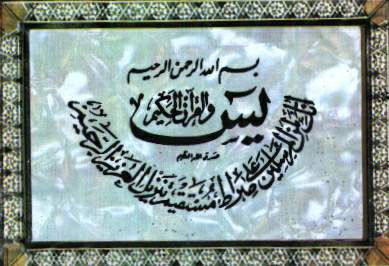 بسم الله الرحمن الرحيم
يس والقرآن الحكيم
انك لمن المرسلين على صراط مستقيم تنزيل العزيز الرحيم
صدق الله العظيم